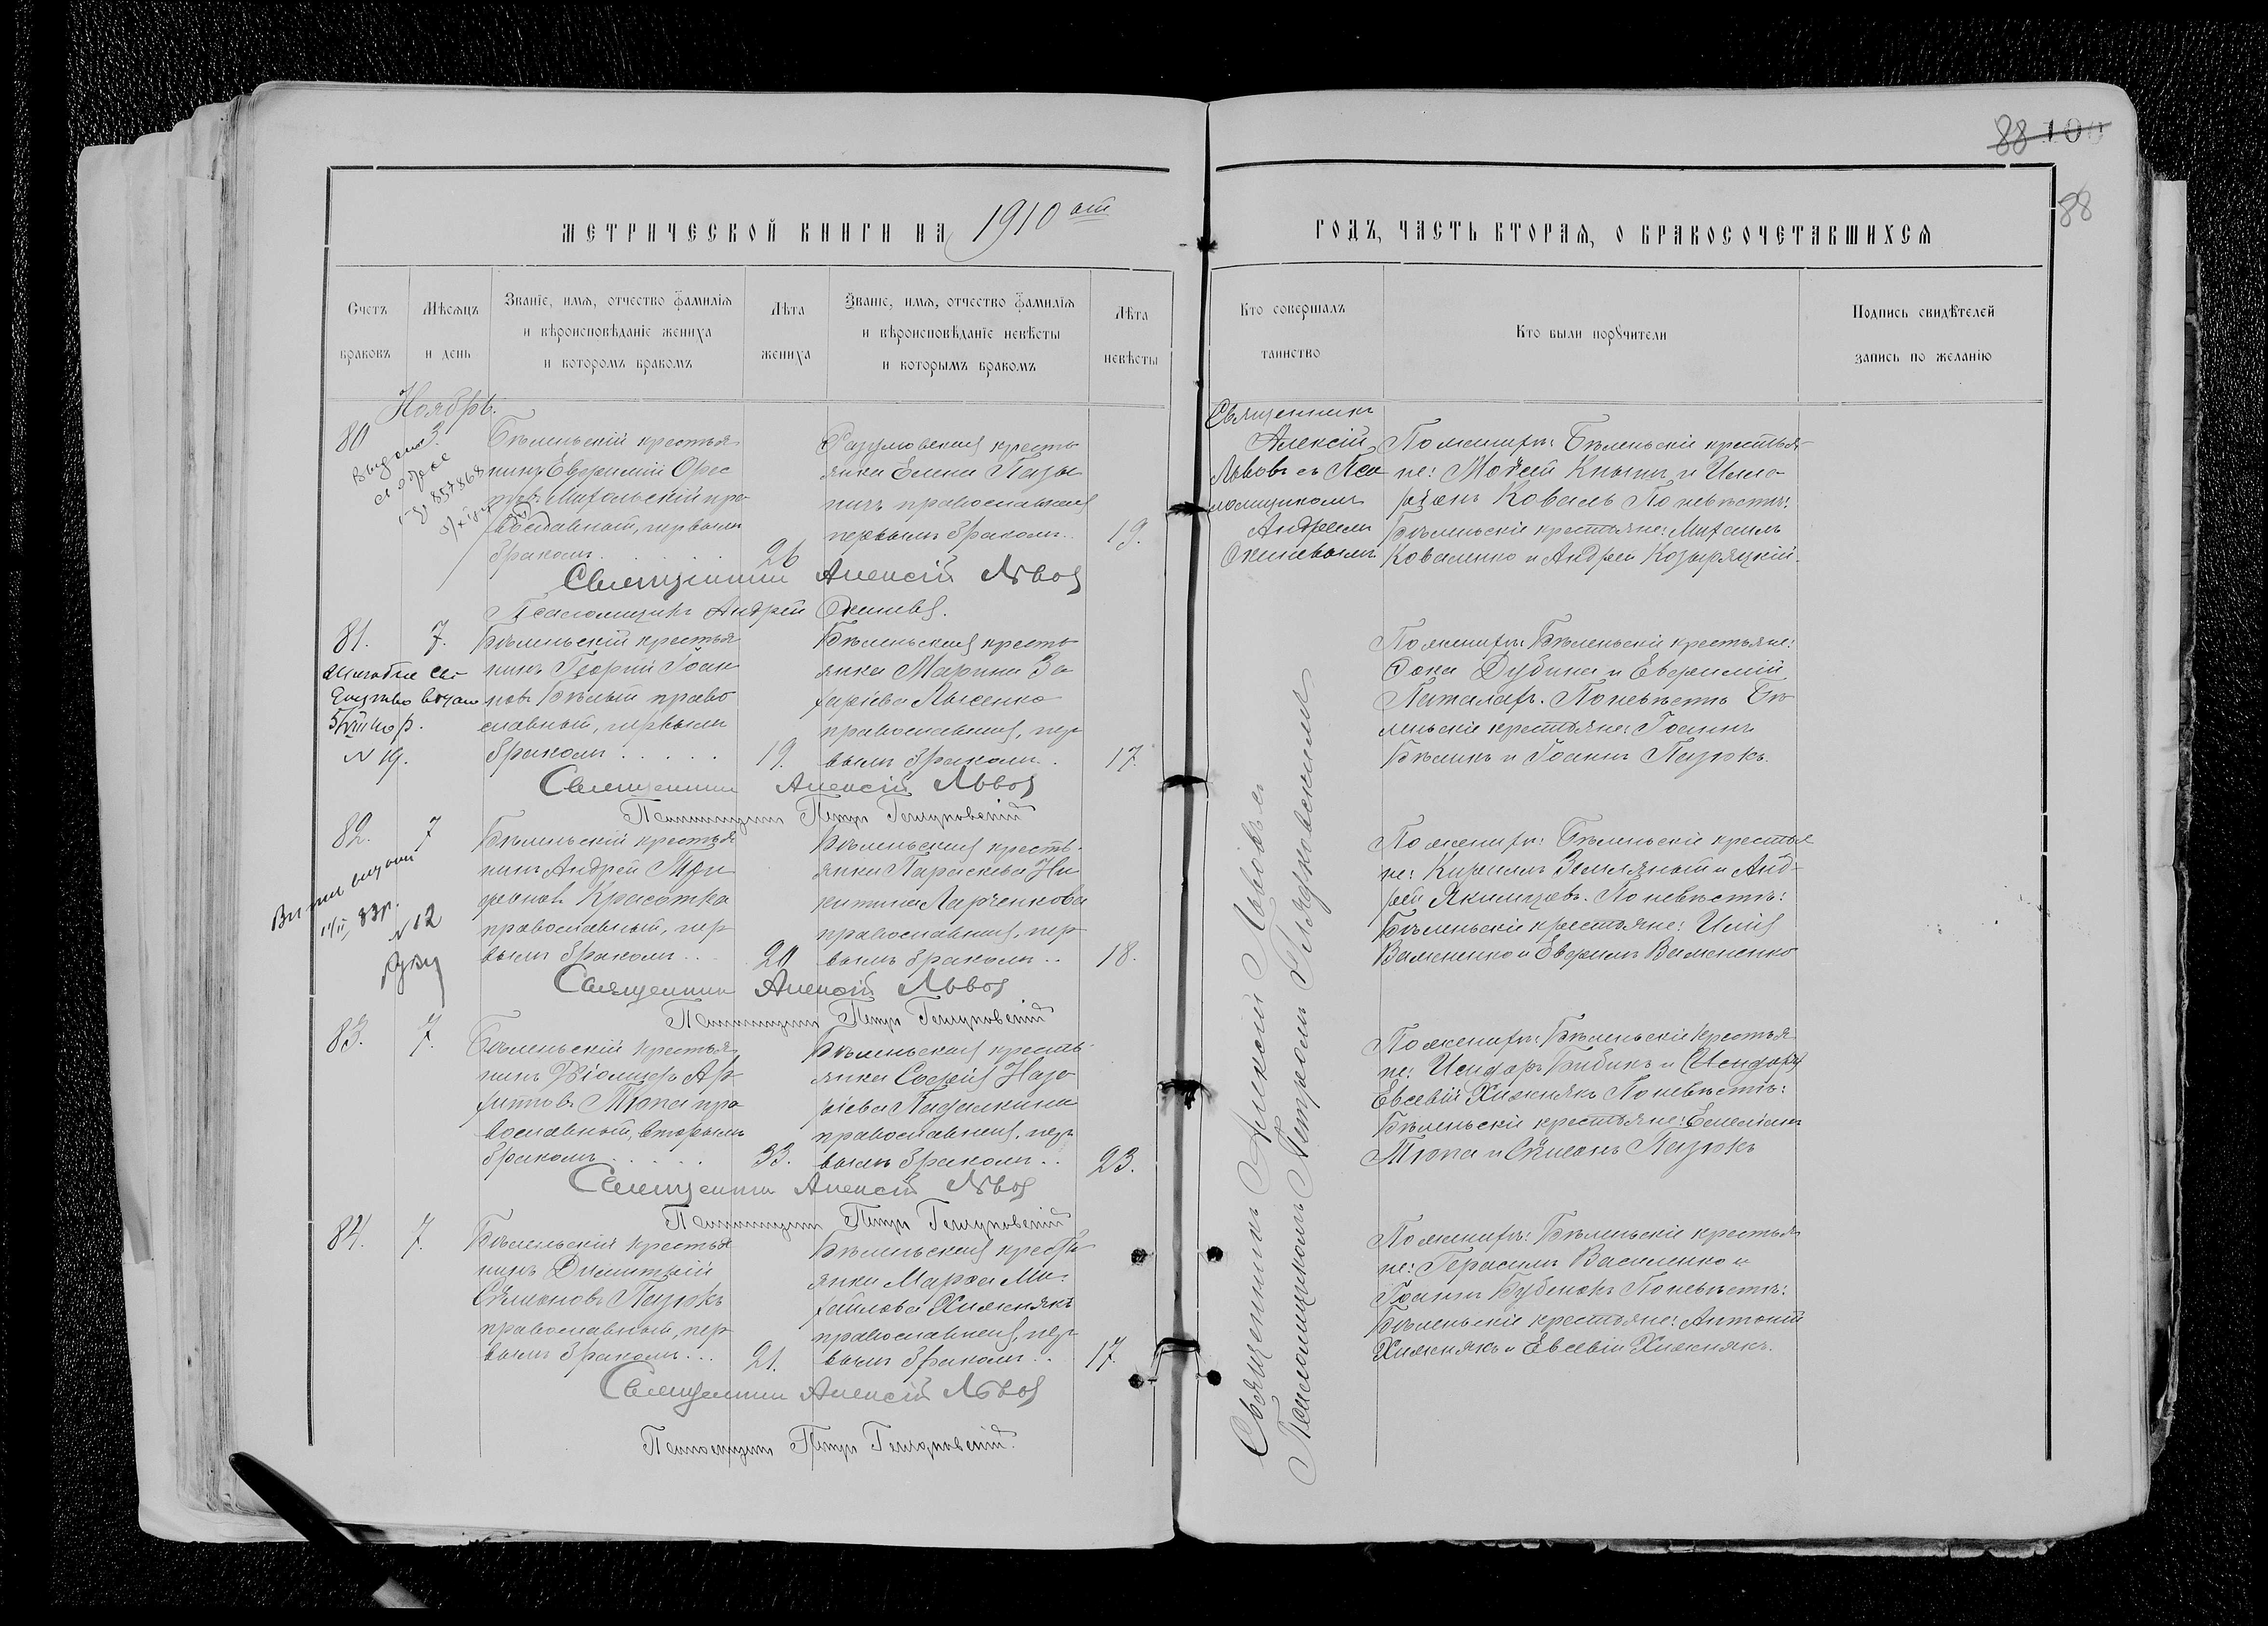 88 100
88
МЕТРИЧЕСКОЙ КНИГИ НА 1910 ый
ГОДЪ, ЧАСТЬ ВТОРАЯ, О БРАКОСОЧЕТАВШИХСЯ
Счетъ браковъ
Мѣсяцъ и день
Званіе, имя, отчество фамилія
и вѣроисповѣданіе жениха
и которомъ бракомъ
Лѣта жениха
Званіе, имя, отчество фамилія
и вѣроисповѣданіе невѣсты
и которымъ бракомъ
Лѣта невѣсты
Кто совершалъ таинство
Кто были поручители
Подпись свидѣтелей
запись по желанію
Ноябрь.
80
3.
Бѣленьскій крестья
нинъ Евфимій
православный, первымъ
бракомъ
26
крестьянка Елена
православная
первымъ бракомъ
19.
Священникъ
Алексій
Львовъ съ Пса
ломщикомъ
Андреемъ
По женихѣ: Бѣленьскіе крестья
не: Моѵсей Кнышъ и Илла
ріонъ Коваль По невѣстѣ:
Бѣленьскіе крестьяне: Михаилъ
Коваленко и Андрей Козыряцкій.
Священникъ Алексій Львовъ
Псаломщикъ Андрей
81.
7.
Бѣленьскій крестья
нинъ Георгій Іоан
новъ Бѣлый право
славный, первымъ
бракомъ
19.
Бѣленьская кресть
янка Марина За
харіева Лысенко
православная, пер
вымъ бракомъ
17.
N 19.
По женихѣ: Бѣленьскіе крестьяне:
Ѳока Дубина и Евфимій
Паталахъ. По невѣстѣ Бѣ
леньскіе крестьяне: Іоаннъ
Бѣликъ и Іоаннъ Пазюкъ.
Священникъ Алексій Львовъ
Псаломщикъ Петръ
82.
7
N 12
Бѣленьскій крестья
нинъ Андрей Три
фоновъ Красотка
православный, пер
вымъ бракомъ
20
Бѣленьская кресть
янка Параскева Ни
китина Ларченкова
православная, пер
вымъ бракомъ
18.
По женихѣ: Бѣленьскіе крестья
не: Кириллъ Земляный и Анд
рей Якимцовъ. По невѣстѣ:
Бѣленьскіе крестьяне: Илія
Важненко и Евфимъ Важненко
Священникъ Алексій Львовъ
Псаломщикъ Петръ
83.
7.
Бѣленьскій крестья
нинъ Ар
хиповъ Тюпа пра
вославный, вторымъ
бракомъ
33.
Бѣленьская кресть
янка Софія Наза
ріева Падалкина
православная, пер
вымъ бракомъ
23.
По женихѣ: Бѣленьскіе крестья
не: Исидоръ Бибикъ и (Исидоръ)
Евсевій Хижнякъ По невѣстѣ:
Бѣленьскіе крестьяне: Емеліанъ
Тюпа и Сѵмеонъ Пазюкъ
Священникъ Алексій Львовъ
Псаломщикъ Петръ
84.
7.
Бѣленьскій крестья
нинъ Димитрій
Сѵмеоновъ Пазюкъ
православный, пер
вымъ бракомъ
21.
Бѣленьская кресть
янка Марѳа Ми
хайлова Хижнякъ
православная, пер
вымъ бракомъ
17.
По женихѣ: Бѣленьскіе крестья
не: Герасимъ Василенко и
Іоаннъ Бубенокъ По невѣстѣ:
Бѣленьскіе крестьяне: Антоній
Хижнякъ и Евсевій Хижнякъ.
Священникъ Алексій Львовъ
Псаломщикъ Петръ
Священникъ Алексій Львовъ съ
Псаломщикомъ Петромъ